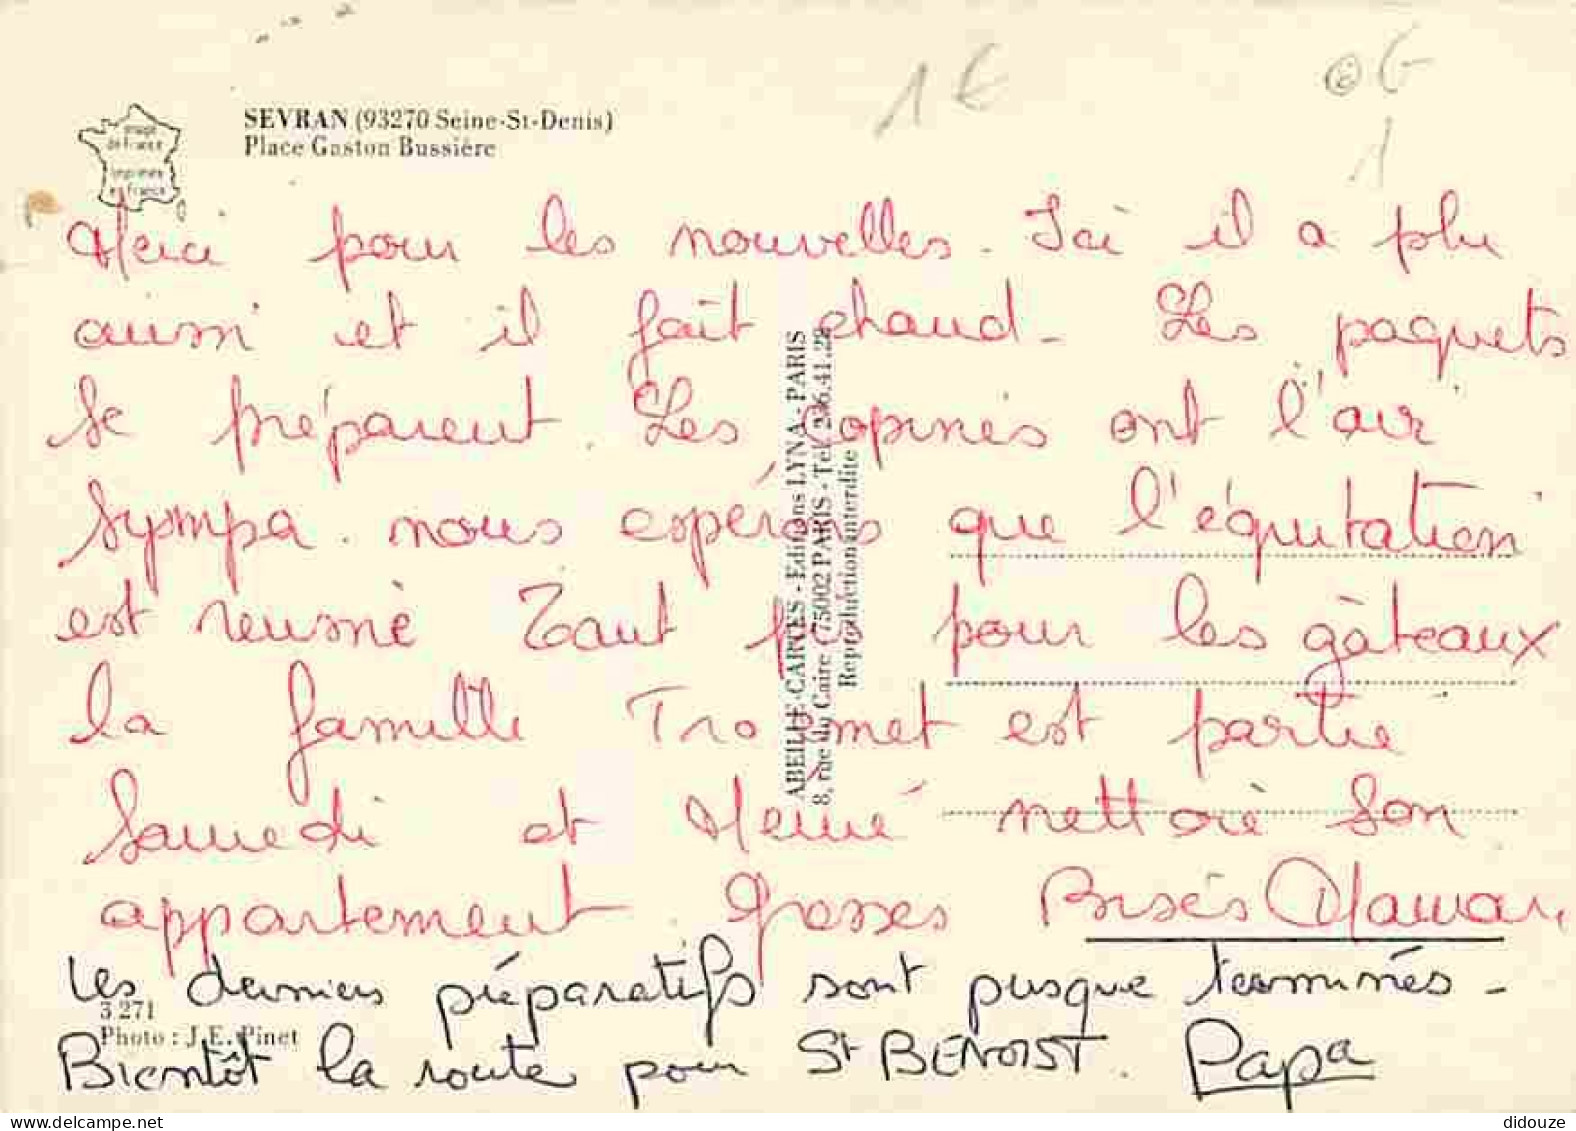 1 €
G
1
SEVRAN (93270 Seine-St-Denis)
Place Gaston Bussière
image
de France
imprimés
en France
Merci pour les nouvelles. Ici il a plu
aussi et il fait chaud. Les paquets
se préparent. Les copines ont l'air
sympa. nous espérons que l'équitation
est reusnie Tant pis pour les gâteaux
la famille est partie
Samedi et Mémé nettoie son
appartement. Grosses Bises Maman
Les derniers préparatifs sont presque terminés -
Bientôt la route pour St BENOIST. Papa
3 271
Photo : J.E. Pinet
ABEILLE-CARTES - Editions LYNA - PARIS
8, rue du Caire (75002 PARIS - Tél. 236.41.28
Reproduction interdite
didouze